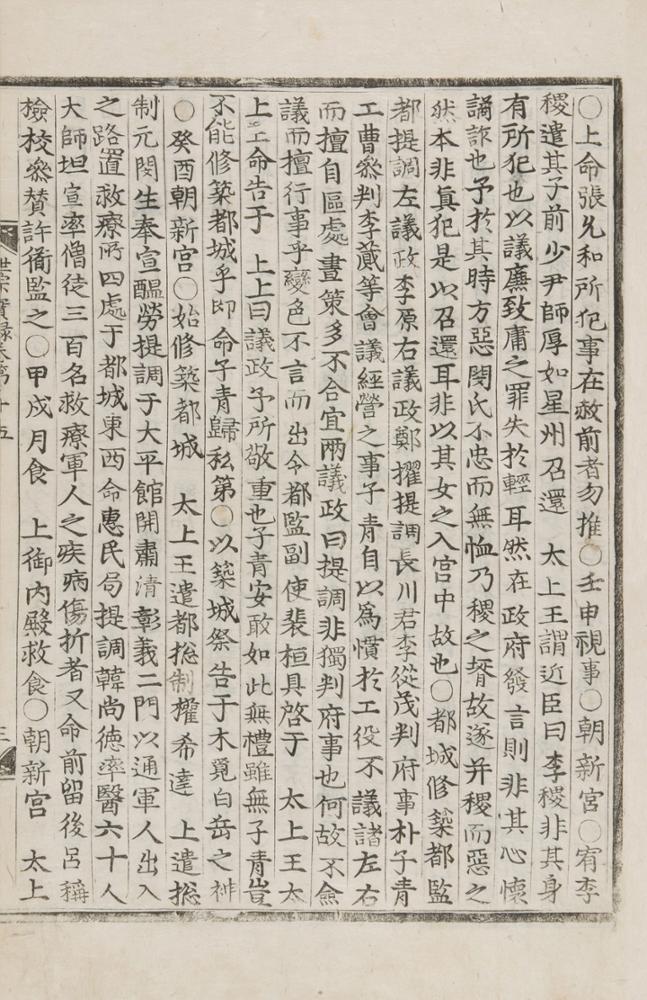 ○上命張允和所犯事在赦前者勿推○壬申視事○朝新宮○宥李
稷遣其子前少尹師厚如星州召還 太上王謂近臣曰李稷非其身
有所犯也以議廉致庸之罪失於輕耳然在政府發言則非其心懷
譎詐也予於其時方惡閔氏不忠而無恤乃稷之壻故遂并稷而惡之
然本非眞犯是以召還耳非以其女之入宮中故也○都城修築都監
都提調左議政李原右議政鄭擢提調長川君李從茂判府事朴子靑
工曹參判李蕆等會議經營之事子靑自以爲慣於工役不議諸左右
而擅自區處畫策多不合宜兩議政曰提調非獨判府事也何故不僉
議而擅行事乎變色不言而出令都監副使裴桓具啓于 太上王太
上王命告于 上上曰議政予所敬重也子靑安敢如此無禮雖無子靑豈
不能修築都城乎卽命子靑歸私第○以築城祭告于木覓白岳之神
○癸酉朝新宮○始修築都城 太上王遣都摠制權希達 上遣摠
制元閔生奉宣醞勞提調于大平館開肅淸彰義二門以通軍人出入
之路置救療所四處于都城東西命惠民局提調韓尙德率醫六十人
大師坦宣率僧徒三百名救療軍人之疾病傷折者又命前留後呂稱
檢校參贊許衜監之○甲戌月食 上御內殿救食○朝新宮 太上
世宗實錄卷第十五
三